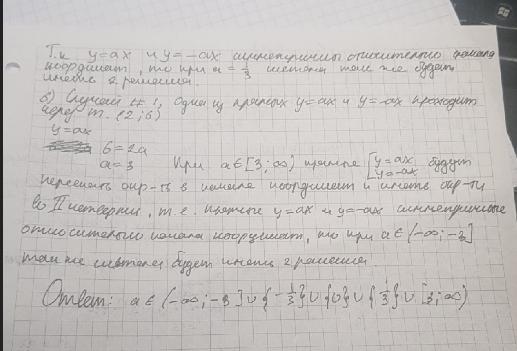 Т.к y=ax и y=-ax симметричны относительно начала
координат, то при a = 1/3 система так же будет
иметь 2 решения.
б) Случай # 1, одна из прямых y=ax и y=-ax проходит
через т. (2; 6)
y=ax
6=2a
a=3 При a∈[3;∞) прямые [y=ax y=-ax будут
пересекать окр-ть в начале координат и иметь окр-ти
во II четверти, т.е. прямые y=ax и y=-ax симметричные
относительно начала координат, то при a∈(-∞;-3]
так же система будет иметь 2 решения
Ответ: a ∈ (-∞; -3] ∪ {-1/3} ∪ {0} ∪ {1/3} ∪ [3; ∞)